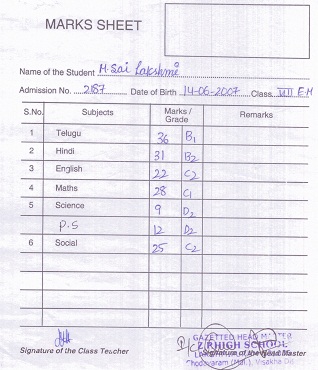 MARKS SHEET
Name of the Student M. Sai Lakshmi
Admission No. 2187 Date of Birth 14-06-2007 Class VIII E.M
S.No. Subjects Marks / Grade Remarks
1 Telugu 36 B1
2 Hindi 31 B2
3 English 22 C2
4 Maths 28 C1
5 Science 9 D2
P.S 12 D2
6 Social 25 C2
GAZETTED HEAD
Z P HIGH SCHOOL
Signature of the Class Teacher Signature of the Head Master
(Man.), Visakha